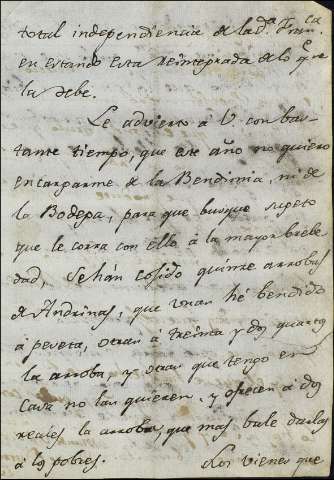 total independiencia de la d.ª Fran.ca
en estando esta Reintegrada de lo q.e
la debe.
Le advierto a V con bas-
tante tiempo, que este año no quiero
encargarme de la Bendimia, ni de
la Bodega, para que busque sugeto
que le corra con ello á la mayor brebe
dad, Se hán cogido quinze arrobas
de Andrinas, que unas hé bendido
á peseta, otras á treinta y dos quartos
la arroba, y otras que tengo en
Casa no las quieren, y ofrecen á dos
reales la arroba, que mas bale darlas
á los pobres. Los vienes que